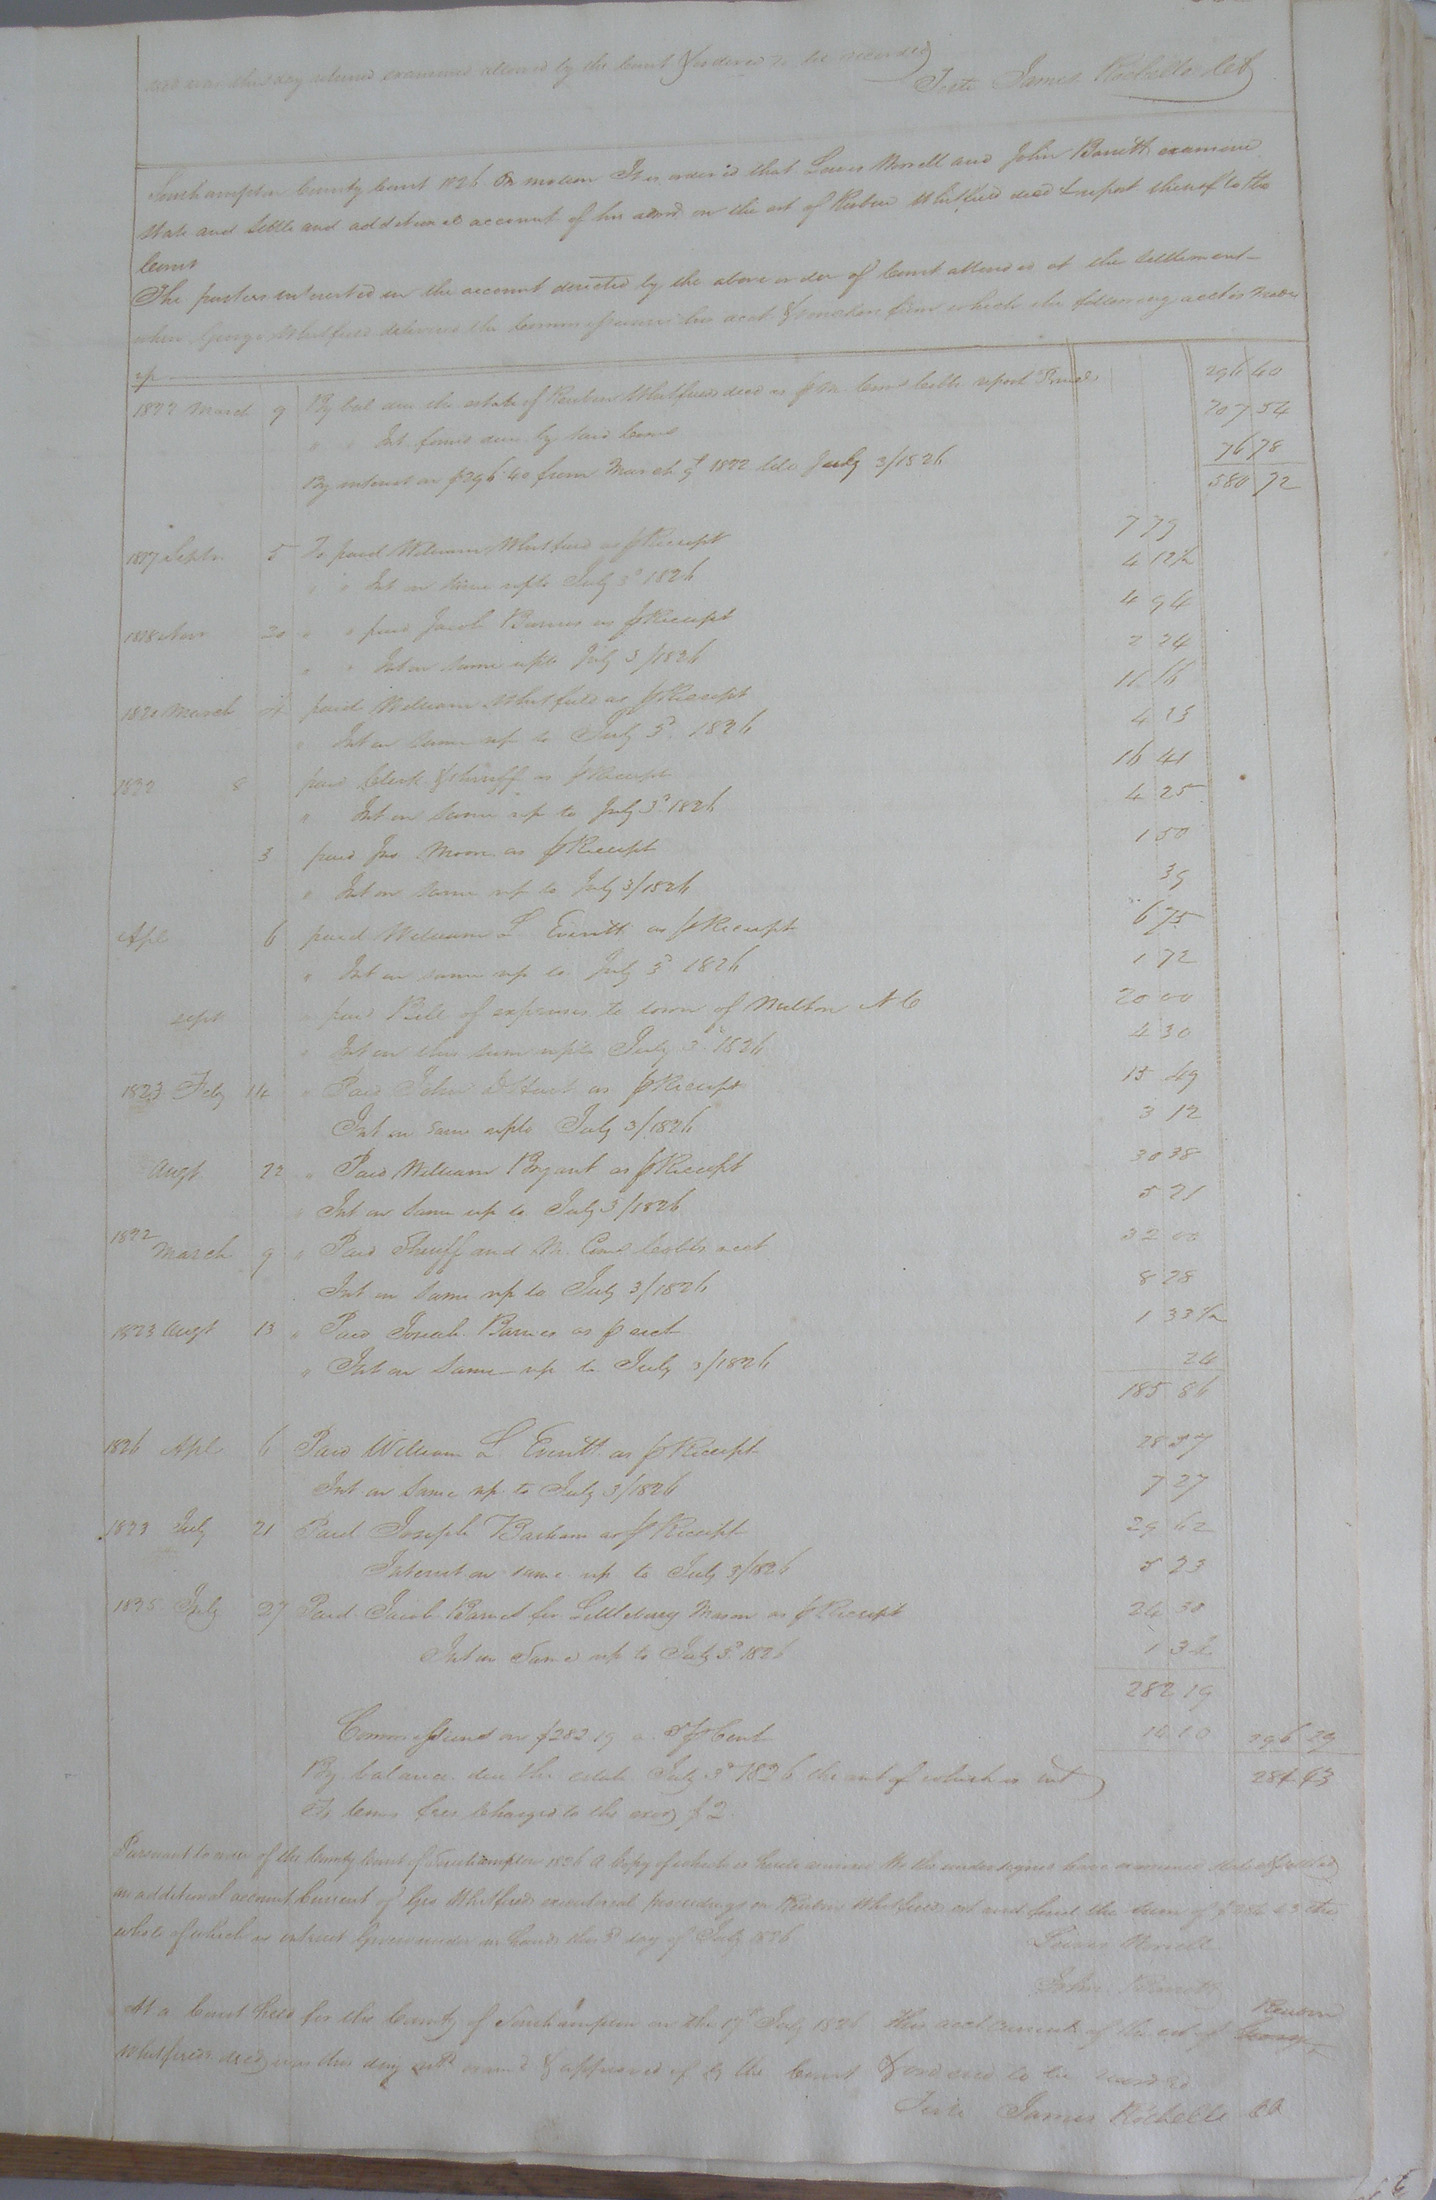 was this day returned examined allowed by the Court & ordered to be recorded
Teste James Rochelle Clk
Southampton County Court 1826 On motion It is ordered that Lewis Worrell and John Barrett examine
state and settle and additional account of his acms on the est of Reuben Whitfield decd & report thereof to the
Court
The parties interested in the account directed by the above order of Court attended at the settlement
when George Whitfield delivered the Commissioners his acct & vouchers from which the following acct is made
up
1822 March 9 By bal due the estate of Reuben Whitfield decd as pr report 296 40
" " Int found due by said Coms 207 54
By interest on $296 40 from March 9th 1822 till July 3/1826 76 78
580 72
1817 Septr 5 To paid William Whitfield as pr Receipt 7 79
" " Int on same upto July 3d 1826 4 12½
1818 Nov 30 " " paid Jacob Barnes as pr Receipt 4 94
" " Int on same upto July 3/1826 2 24
1820 March paid William Whitfield as pr Receipt 11 16
" Int on same up to July 3d 1826 4 23
8 paid Clerk & Sheriff as pr Receipt 16 41
" Int on same up to July 3d 1826 4 25
3 paid Jno Moon as pr Receipt 1 50
" Int on same up to July 3/1826 39
Apl 6 paid William L Everitt as pr Receipt 6 75
" Int on same up to July 3d 1826 1 72
sept " paid Bill of expenses to town of Milton N C 20 00
" Int on this sum upto July 3d 1826 4 30
1823 Feby 14 " Paid John D Hart as pr Receipt 15 49
Int on same upto July 3/1826 3 12
Augt 22 " Paid William Bryant as pr Receipt 30 38
" Int on same up to July 3/1826 5 21
1822
March 9 " Paid Sheriff and acct 32 00
Int on same up to July 3/1826 8 28
1823 Augt 13 " Paid Josiah Barnes as pr acct 1 33½
" Int on same up to July 3/1826 24
185 86
1826 Apl 6 Paid William L Everitt as pr Receipt 28 57
Int on same up to July 3/1826 7 27
1823 July 21 Paid Joseph Barham as pr Receipt 29 62
Interest on same up to July 3/1826 5 23
1825 July 27 Paid Jacob Barnes for Littlebury Mason as pr Receipt 24 30
Int on same up to July 3d 1826 1 34
282 19
Commissions on $282 19 a 5 pr Cent 14 10 296 29
By balance due the estate July 3d 1826 the amt of which is int 284 43
To Coms fees charged to the exor $2
Pursuant to order of the County Court of Southampton 1826 A Copy of which is hereto annexed We the undersigned have examined stated & settled
an additional account Current of Geo Whitfields executorial proceedings on Reuben Whitfields est and find the sum of $284 43 the
whole of which is interest Given under our hands this 3d day of July 1826
Lewis Worrell
John Barrett
At a Court held for the County of Southampton on the 17th July 1826 this acct current of the est of George Reuben
Whitfield decd was this day retd examd & approved of by the Court & ordered to be recorded
Teste James Rochelle Clk